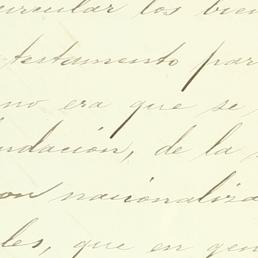 los bien
testamento par
no era que se
undación, de la
on nacionaliza
les, que en gen